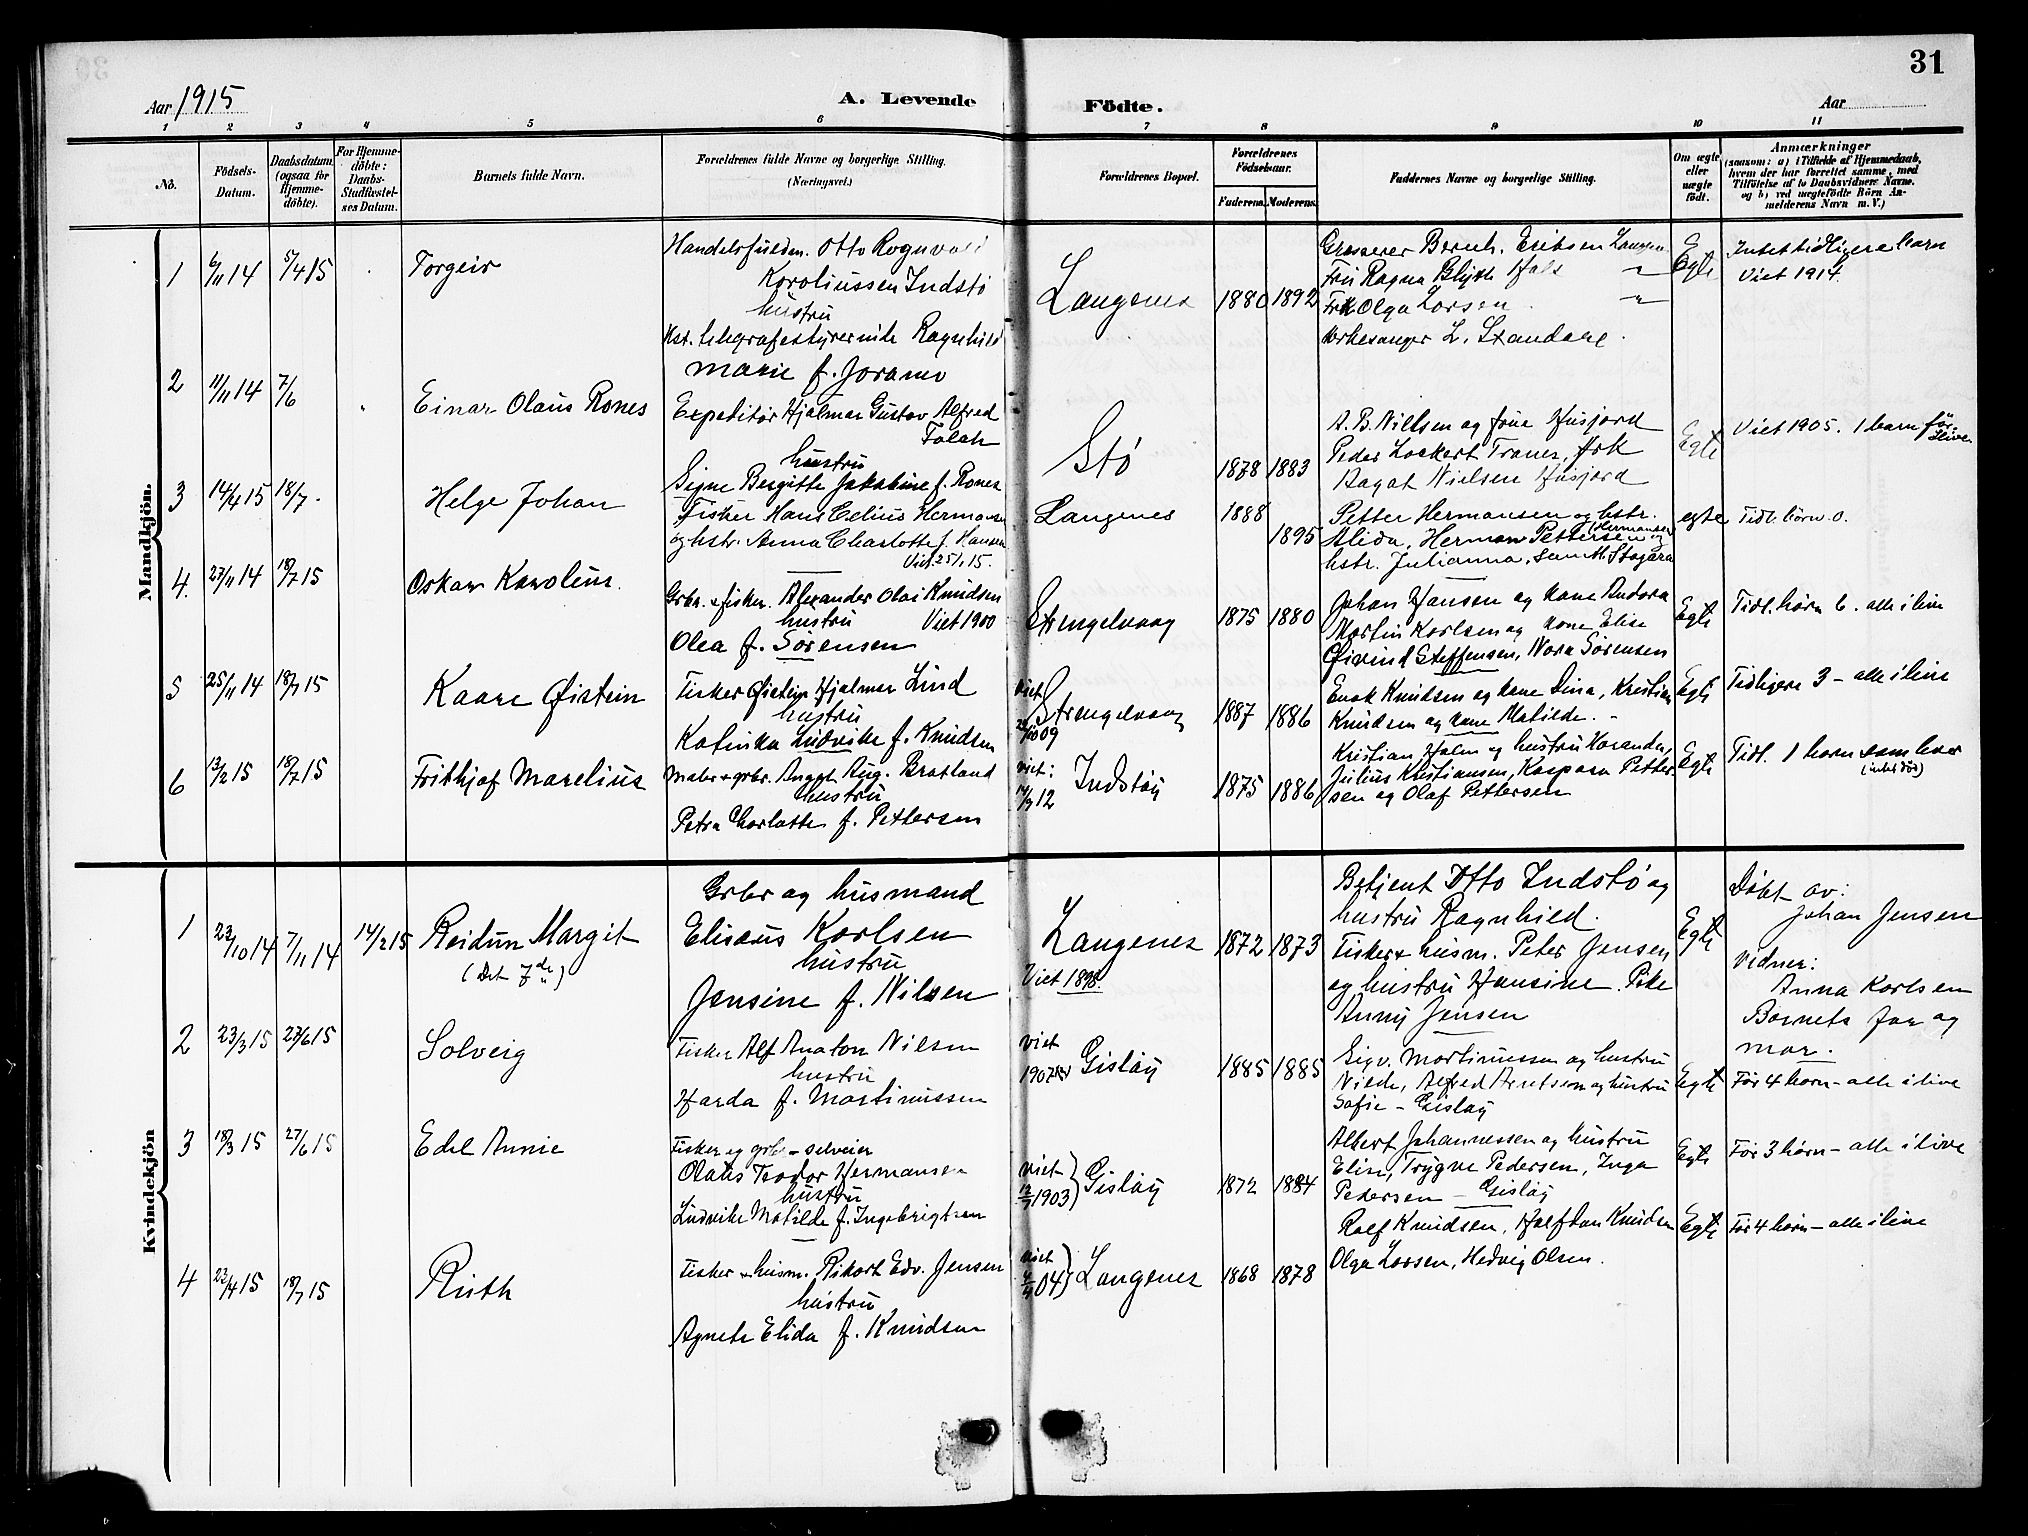 31
Aar 1915
A. Levende
Födte.
Aar
1 2 3 4 5 6 7 8 9 10 11
No.
Födsels-
Datum.
Daabsdatum
(ogsaa for
Hjemme-
döbte).
For Hjemme-
döbte:
Daabs-
Stadfæstel-
ses Datum.
Barnets fulde Navn.
Forældrenes fulde Navne og borgerlige Stilling.
(Næringsvei.)
Forældrenes Bopæl.
Forældrenes
Födselsaar.
Faderens. Moderens.
Faddernes Navne og borgerlige Stilling.
Om ægte
eller
uægte
födt.
Anmærkninger
(saasom: a) i Tilfælde af Hjemmedaab,
hvem der har forrettet samme, med
Tilföielse af to Daabsvidners Navne,
og b) ved uægtefödte Börn An-
melderens Navn m. V.)
Mandkjön.
1 6/11 14 5/4 15 Torgeir
Handelsfuldm. Otto Rognvald
Karoliussen Indstö
hustru
Kst. telegrafestyrerinde Ragnhild
Marie f. Joramo
Langenes 1880 1892
Grosserer Bernh. Eriksen Langen
Fru Ragna Blyth Hals "
Frk Olga Larsen "
Kirkesanger L. Standal.
Egte
Intet tidligere barn
Viet 1914.
2 11/11 14 7/6 Einar Olaus Rones
Expeditör Hjalmar Gustav Alfred
Falch
hustru
Signe Bergitte Jakobine f. Rones
Stö 1878 1883
A. B. Nielsen og frue Husjord
Peder Lockert Traner, frk
Dagot Nielsen Husjord
Egte
Viet 1905. 1 barn för
ilive.
3 14/4 15 18/7. Helge Johan
Fisker Hans Celius Hermansen
og hstr. Anna Charlotte f. Hansen
Viet 25/1 15.
Langenes 1888
1895
Petter Hermansen og hstr.
Alida, Herman Pettersen (Hermansen) og
hstr. Julianna, samt
egte Tidl. börn 0.
4. 27/11 14 18/7 15 Oskar Karolius.
Grbr. + fisker. Alexander Olai Knudsen
hustru Viet 1900
Olea f. Sörensen
Strengelvaag 1875 1880
Johan Hansen og kone Andora
Martin Karlsen og kone Elise
Øivind Steffensen, Nora Sörensen
Egte Tidl. börn 6. alle i live
5 25/11 14 18/7 15 Kaare Øistein
Fisker Øistein Hjalmar Lind
hustru
Katinka Ludvikke f. Knudsen
viet
09
Strengelvaag 1887 1886
Enok Knudsen og kone Dina, Kristian
Knudsen og kone Matilde.
Egte Tidligere 3 – alle i live
6 13/2 15 18/7 15 Frithjof Marelius
Maler + grbr. Anggl. Aug. Bratland
hustru
Petra Charlotte f. Pettersen
viet:
14/9 12
Indstöy 1875 1886
Kristian Holm og hustru Haranda,
Julius Kristiansen, Kaspara Petter-
sen og Olaf Pettersen
Egte Tidl. 1 barn som lever
(intet död)
Kvindekjön
1 23/10 14 7/11 14 14/2 15 Reidun Margit
(Det 7de)
Grbr og husmand
Elisæus Karlsen
hustru
Jensine f. Nilsen
Langenes 1872 1873
Viet 1898.
Betjent Otto Indstö og
hustru Ragnhild.
Fisker + husm. Peter Jensen
og hustru Hansine. Pike
Anny Jensen
Egte
Döbt av:
Johan Jensen
Vidner:
Anna Karlsen
Barnets far og
mor.
2 23/3 15 27/6 15 Solveig
Fisker Alf Anaton Nilsen
hustru
Harda f. Martinussen
viet
1907
Gislöy 1885 1885
Sigv. Martinussen og hustru
Alfred Arntsen og hustru
Sofie – Gislöy
Egte För 4 börn – alle i live
3 18/3 15 27/6 15 Edel Annie
Fisker og grbr – selveier
Olaus Teodor Hermansen
hustru
Ludvikke Matilde f. Ingebrigtsen
viet
1903)
Gislöy 1872 1884
Albert Johannessen og hustru
Elise, Trygve Pedersen, Inga
Pedersen – Gislöy
Egte För 3 börn – alle i live
4 23/4 15 18/7 15 Ruth
Fisker + husm. Rikart Edv. Jensen
hustru
Agnete Elida f. Knudsen
viet
04)
Langenes 1868 1878
Rolf Knudsen, Halfdan Knudsen
Olga Larsen, Hedvig Olsen.
Egte För 4 börn – alle i live